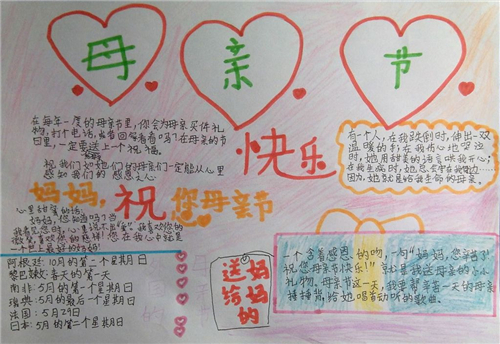 母 亲 节
在每年一度的母亲节里,你会为母亲买件礼
物,打个电话,或者回家看看吗?在母亲的节
日里,一定要送上个祝福。
祝我们对她们的母亲们一定能从心里
感知我们的感恩之心
快乐
有一个人,在我跌倒时,伸出一双
温暖的手;在我伤心地哭泣
时,她用甜美的语言哄我开心;
在我生病时,她总会守在我
因为,她就是给我生命的母亲。
妈妈,祝您母亲节
心里甜蜜的话:
妈妈,您知道吗?当
我看见您时,心里说不出"爱",我喜欢你的
微笑,喜欢你的
一个最美好的妈妈!
阿根廷:10月的第二个星期日
黎巴嫩:春天的第一天
南非:5月的第一个星期日
瑞典:5月的最后一个星期日
法国:5月29日
日本:5月的第二个星期日
送给妈妈的
一个含着感恩的吻,一句"妈妈,您辛苦了
祝您母亲节快乐!"就是我送母亲的小小
礼物。母亲节这一天,我要帮辛苦一天的母亲
捶捶背,给她唱首动听的歌曲。